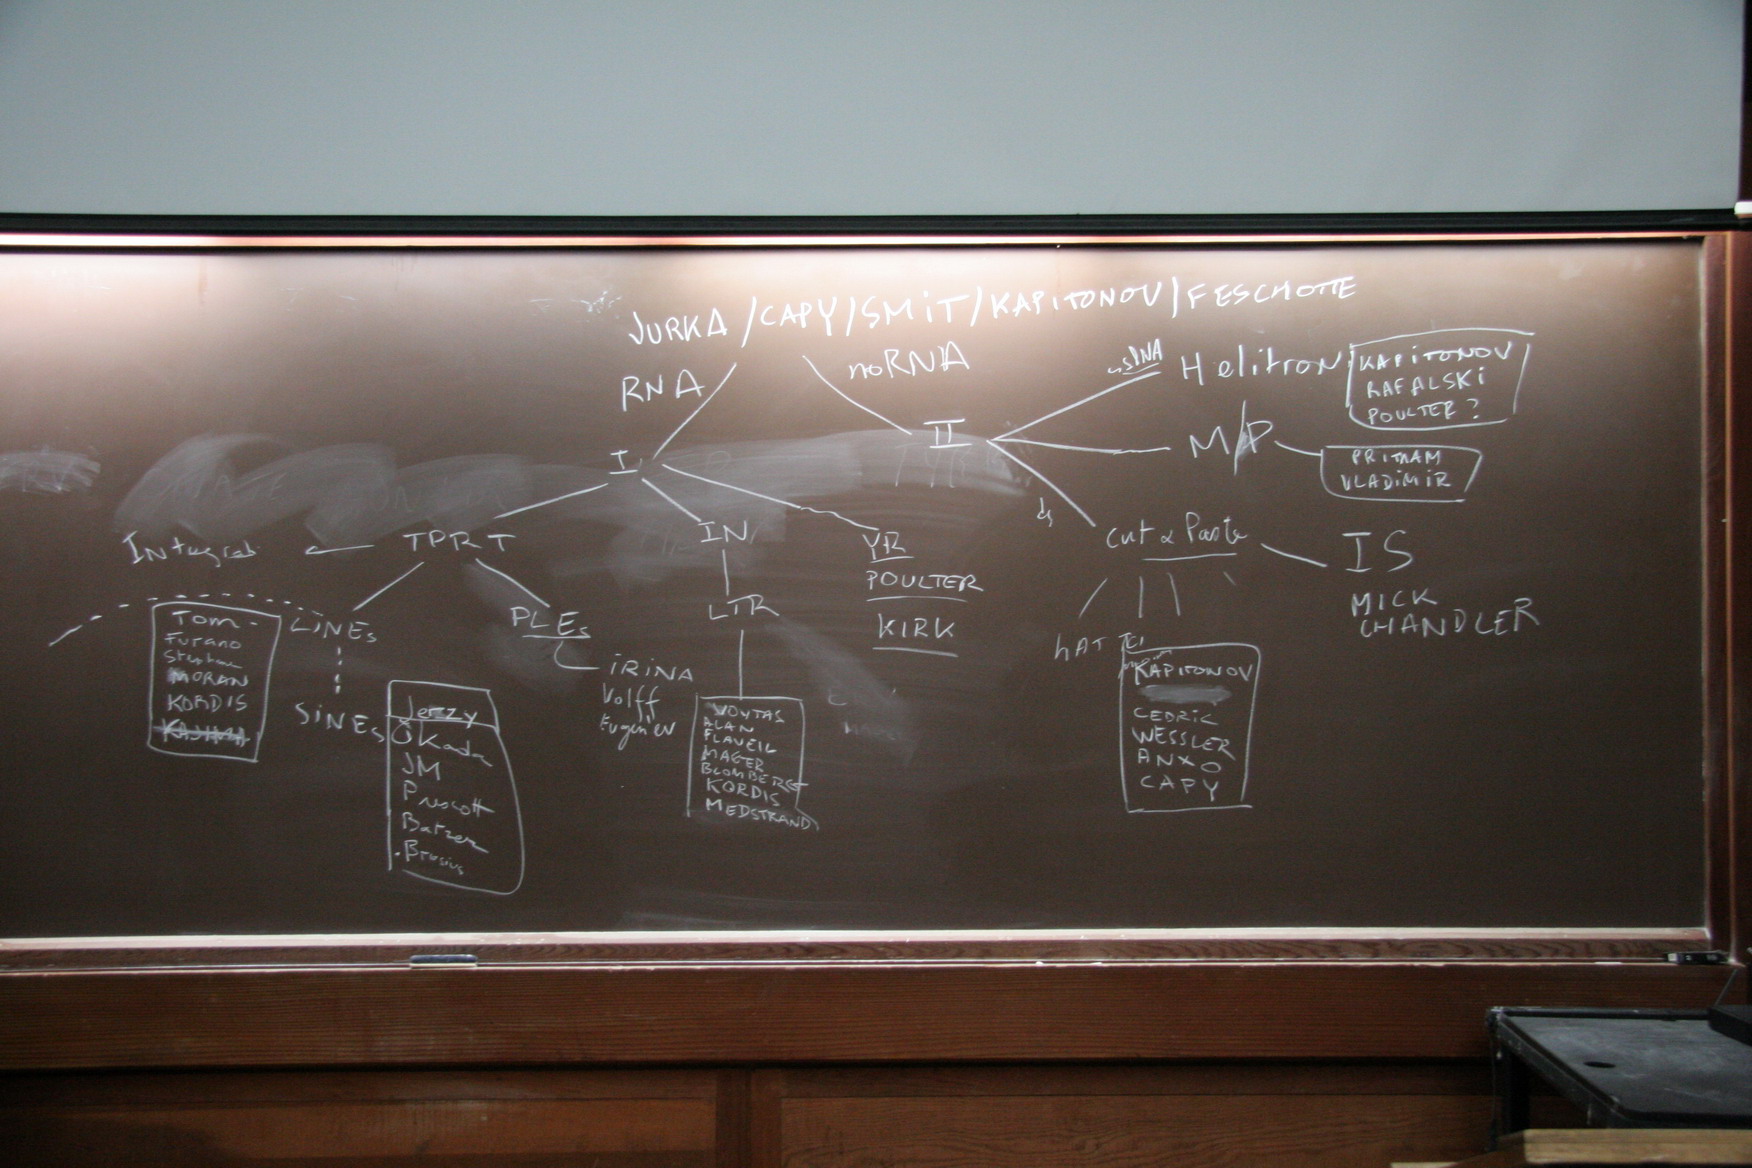 JURKA / CAPY / SMIT / KAPITONOV / FESCHOTTE
RNA
noRNA
I
II
ssDNA
Helitron
KAPITONOV
RAFALSKI
POULTER ?
M/P
PRITHAM
VLADIMIR
ds
Cut & Paste
IS
MICK
CHANDLER
hAT Tc1
KAPITONOV
CEDRIC
WESSLER
ANXO
CAPY
TPRT
IN
YR
POULTER
KIRK
LINEs
Tom
Furano
Stephane
MORAN
KORDIS
KAJIMA
SINEs
Jerzy
Okada
JM
Prescott
Batzer
Brosius
PLEs
IRINA
Volff
Eugeniev
LTR
VOYTAS
ALAN
FLAVELL
MAGER
BLOMBERG
KORDIS
MEDSTRAND